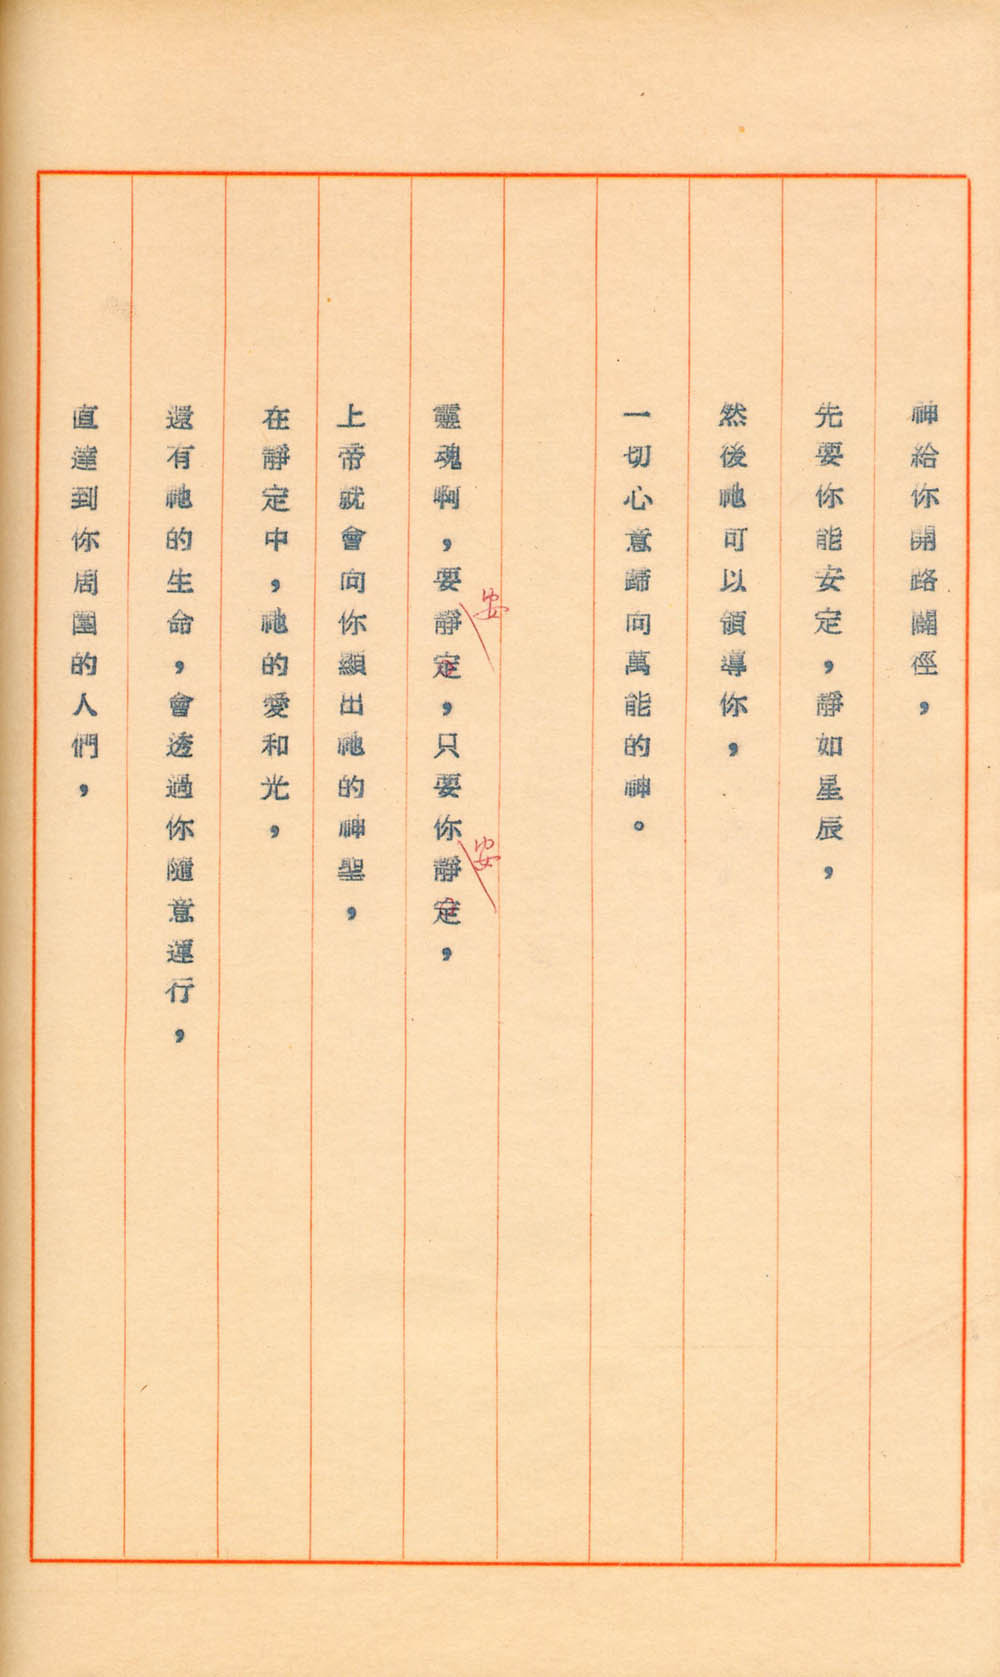 神給你開路闢徑，
先要你能安定，靜如星辰，
然後祂可以領導你，
一切心意歸向萬能的神。
安
安
靈魂啊，要靜定，只要你靜定，
上帝就會向你顯出祂的神聖，
在靜定中，祂的愛和光，
還有祂的生命，會透過你隨意運行，
直達到你周圍的人們，